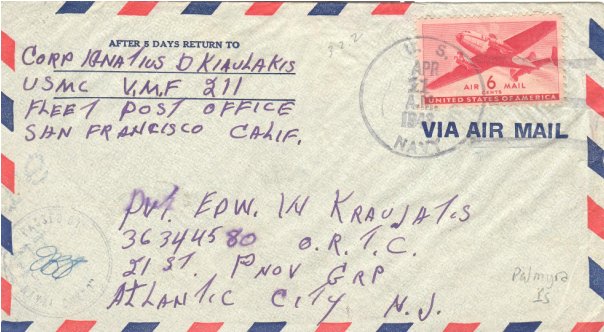 AFTER 5 DAYS RETURN TO
CORP IGNATIUS D KIAULAKIS
USMC V.M.F 211
FLEET POST OFFICE
SAN FRANCISCO CALIF.
322
U.S.
APR
21
A.M.
NAVY
AIR 6 MAIL
CENTS
UNITED STATES OF AMERICA
VIA AIR MAIL
Pvt. EDW. W KRAUJATIS
36344580 O.R.T.C.
21 ST. PROV GRP
ATLANTIC CITY N.J.
PASSED BY
Palmyra
Is